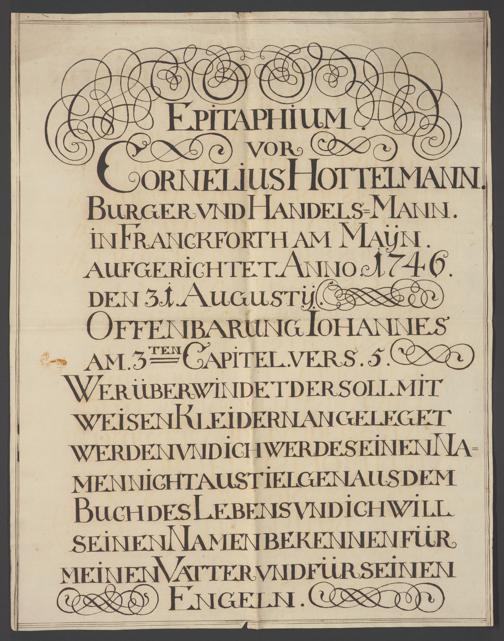 EPITAPHIUM.
VOR
CORNELIUS HOTTELMANN.
BURGER VND HANDELS=MANN.
IN FRANCKFORTH AM MAŸN.
AUFGERICHTET. ANNO. 1746.
DEN 31. AUGUSTŸ
OFFENBARUNG IOHANNES
AM. 3TEN CAPITEL. VERS. 5.
WER ÜBERWINDET DER SOLL MIT
WEISEN KLEIDERN ANGELEGET
WERDEN VND ICH WERDE SEINEN NA=
MEN NICHT AUSTIELGEN AUS DEM
BUCH DES LEBENS VND ICH WILL
SEINEN NAMEN BEKENNEN FÜR
MEINEN VATTER VND FÜR SEINEN
ENGELN.